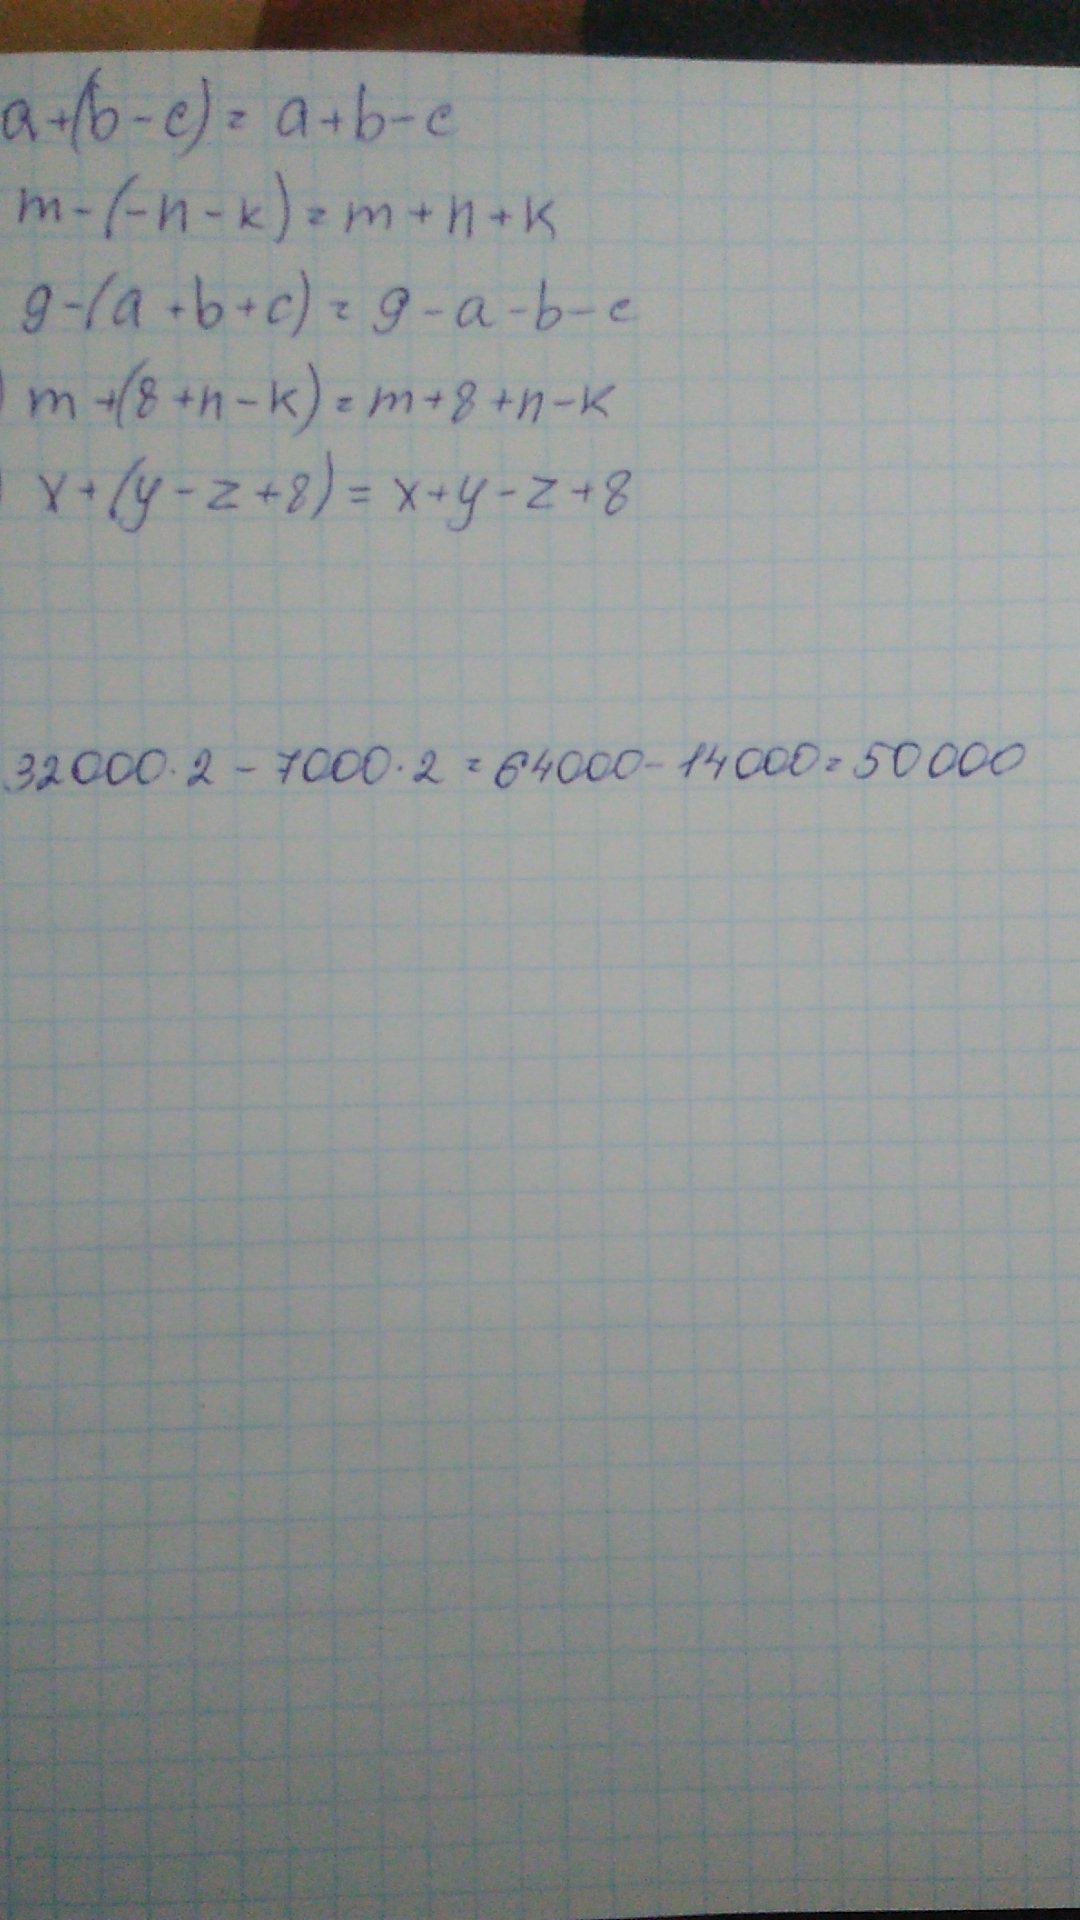 a+(b-c)= a+b-c
m-(-n-k)=m+n+k
g-(a+b+c)= g-a-b-c
) m+(8+n-k)=m+8+n-k
) x+(y-z+8)= x+y-z+8
32000·2 - 7000·2 = 64000-14000=50000